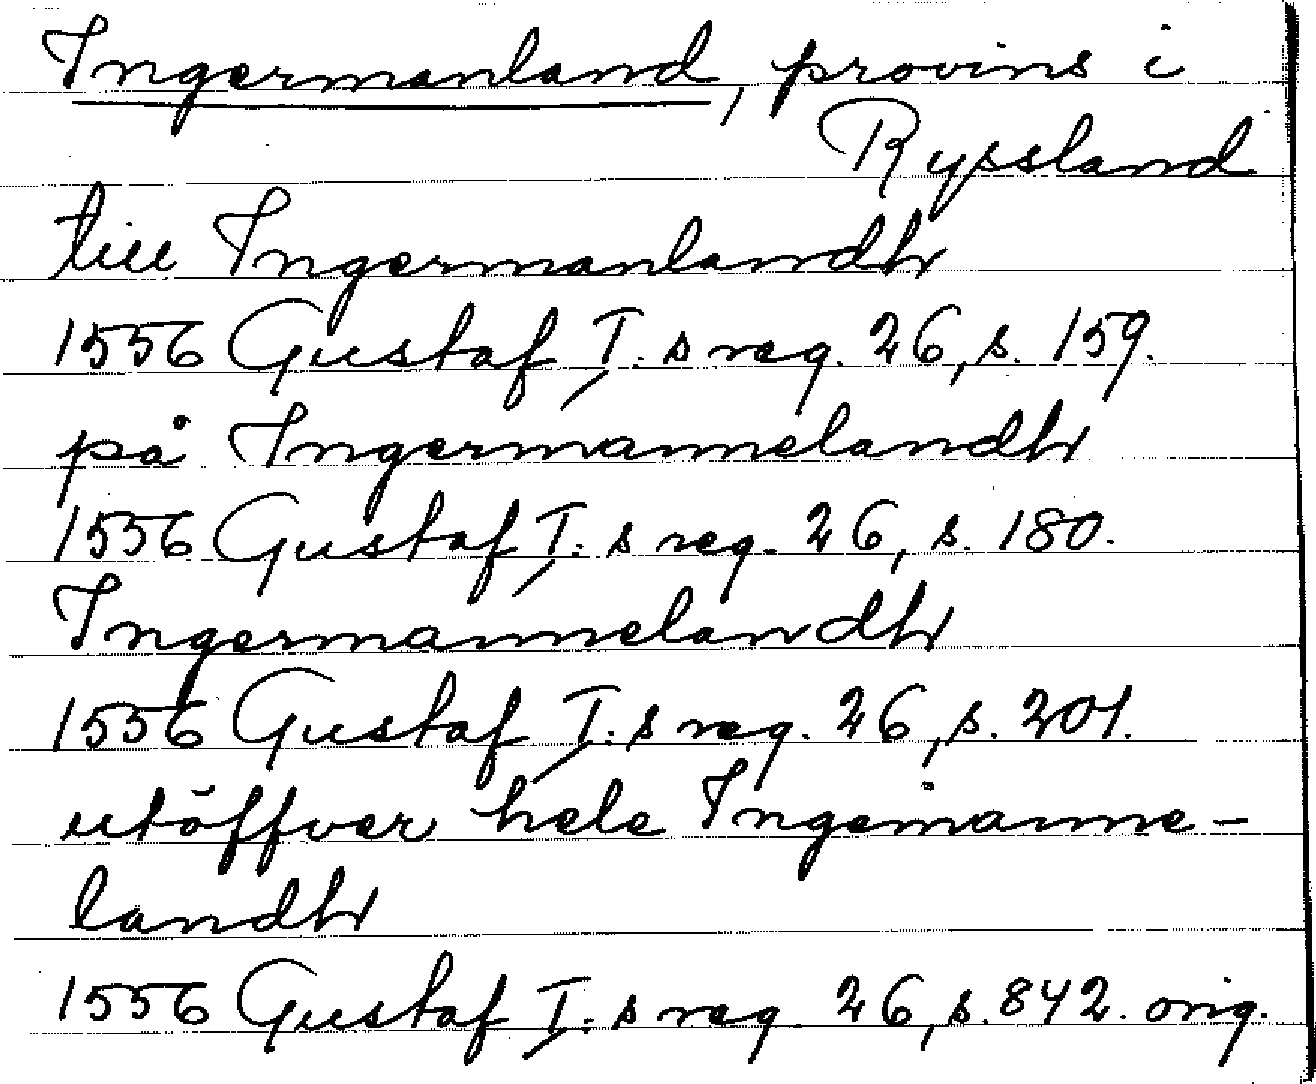 Ingermanland, provins i
Ryssland
till Ingermanlandh
1556 Gustaf I:s reg. 26, s. 159.
på Ingermannelandh
1556 Gustaf I:s reg. 26, s. 180.
Ingermannelandh
1556 Gustaf I:s reg. 26, s. 201.
utöffver hele Ingemanne-
landh
1556 Gustaf I:s reg. 26, s. 842. orig.